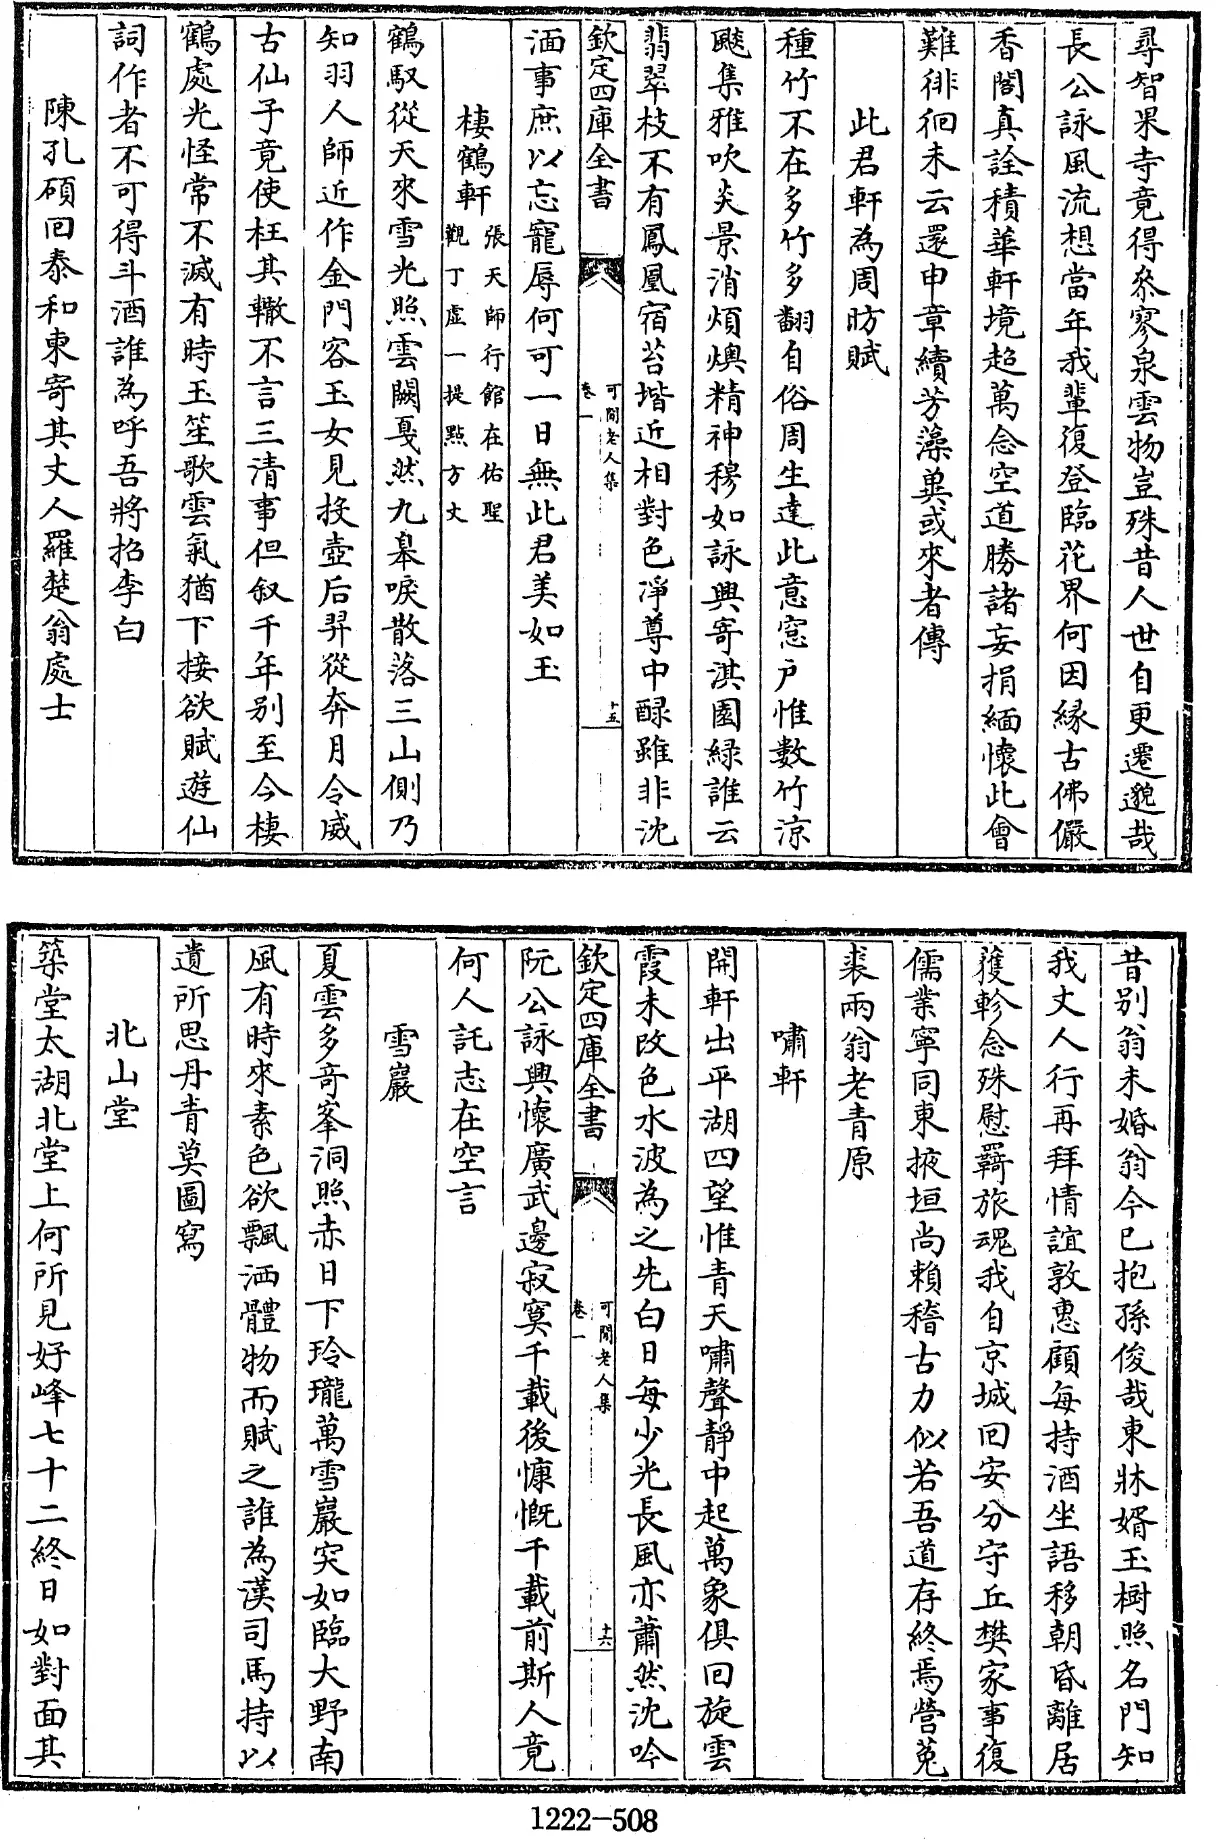 尋智果寺竟得叅寥泉雲物豈殊昔人世自更遷邈哉
長公詠風流想當年我輩復登臨花界何因緣古佛儼
香閣真詮積華軒境超萬念空道勝諸妄捐緬懷此會
難徘徊未云還申章續芳藻兾或來者傳
此君軒為周昉賦
種竹不在多竹多翻自俗周生達此意窓户惟數竹涼
颸集雅吹炎景消煩燠精神穆如詠興寄淇園緑誰云
翡翠枝不有鳳凰宿苔堦近相對色凈尊中醁雖非沈
欽定四庫全書
可閒老人集
卷一
十五
湎事庶以忘寵辱何可一日無此君美如玉
棲鶴軒
張天師行館在佑聖
觀丁虛一提㸃方丈
鶴馭從天來雪光照雲闕戛然九皋唳散落三山側乃
知羽人師近作金門客玉女見投壺后羿從奔月令威
古仙子竟使枉其轍不言三清事但叙千年别至今棲
鶴處光怪常不滅有時玉笙歌雲氣猶下接欲賦遊仙
詞作者不可得斗酒誰為呼吾將招李白
陳孔碩回泰和東寄其丈人羅楚翁處士
昔别翁未婚翁今已抱孫俊哉東牀婿玉樹照名門知
我丈人行再拜情誼敦惠顧每持酒坐語移朝昏離居
獲軫念殊慰羇旅魂我自京城回安分守丘樊家事復
儒業寧同東掖垣尚賴稽古力似若吾道存終焉營菟
裘兩翁老青原
嘯軒
開軒出平湖四望惟青天嘯聲靜中起萬象俱回旋雲
霞未改色水波為之先白日每少光長風亦蕭然沈吟
欽定四庫全書
可閒老人集
卷一
十六
阮公詠興懷廣武邊寂寞千載後慷慨千載前斯人竟
何人託志在空言
雪巖
夏雲多竒峯洞照赤日下玲瓏萬雪巖突如臨大野南
風有時來素色欲飄洒體物而賦之誰為漢司馬持以
遺所思丹青莫圖寫
北山堂
築堂太湖北堂上何所見好峰七十二終日如對面其
1222-508